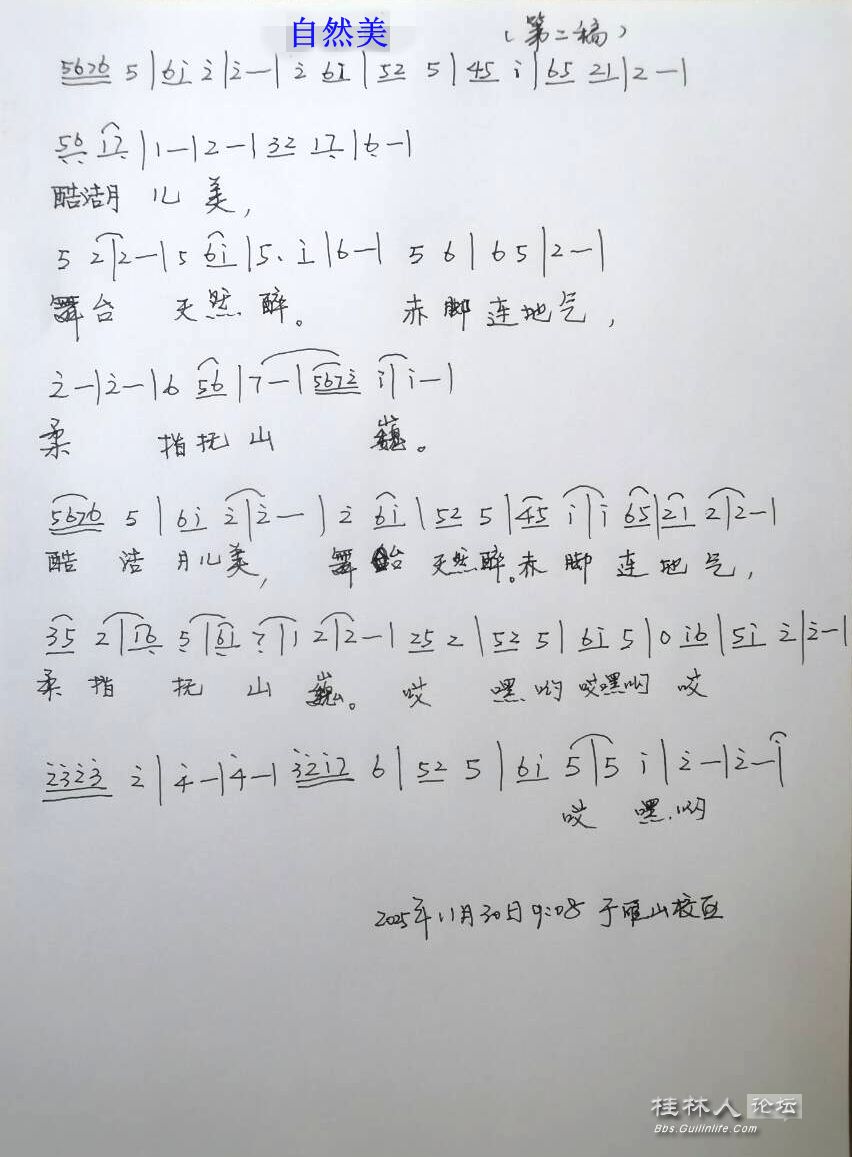 自然美
（第二稿）
5676 5 | 6i 2̇ | 2̇ — | 2̇ 6i | 52 5 | 45 i | 65 21 | 2 — |
56 17 | 1 — | 2 — | 32 17 | 6 — |
酷洁月 儿 美，
5 2 | 2 — | 5 6i | 5. i | 6 — | 5 6 | 6 5 | 2 — |
舞台 天然 醉。 赤脚连地气，
2̇ — | 2̇ — | 6 56 | 7 — | 5672̇ i | i — |
柔 指抚山 巍。
5676 5 | 6i 2̇ | 2̇ — | 2̇ 6i | 52 5 | 45 i | i 65 | 21 2 | 2 — |
酷 洁 月儿美， 舞 台 天然醉。赤 脚 连 地 气，
35 2 | 16 5 | 61 7 | 1 2 | 2 — | 25 2 | 52 5 | 6i 5 | 0 i6 | 5i 2̇ | 2̇ — |
柔 指 抚 山 巍。 哎 嘿 哟 哎嘿哟 哎
2̇3̇2̇3̇ 2̇ | 4̇ — | 4̇ — | 3̇2̇i7 6 | 52 5 | 6i 5 | 5 i | 2̇ — | 2̇ — |
哎 嘿 哟
2025年11月30日9:08 于雁山校区
桂林人论坛
Bbs.Guilinlife.Com